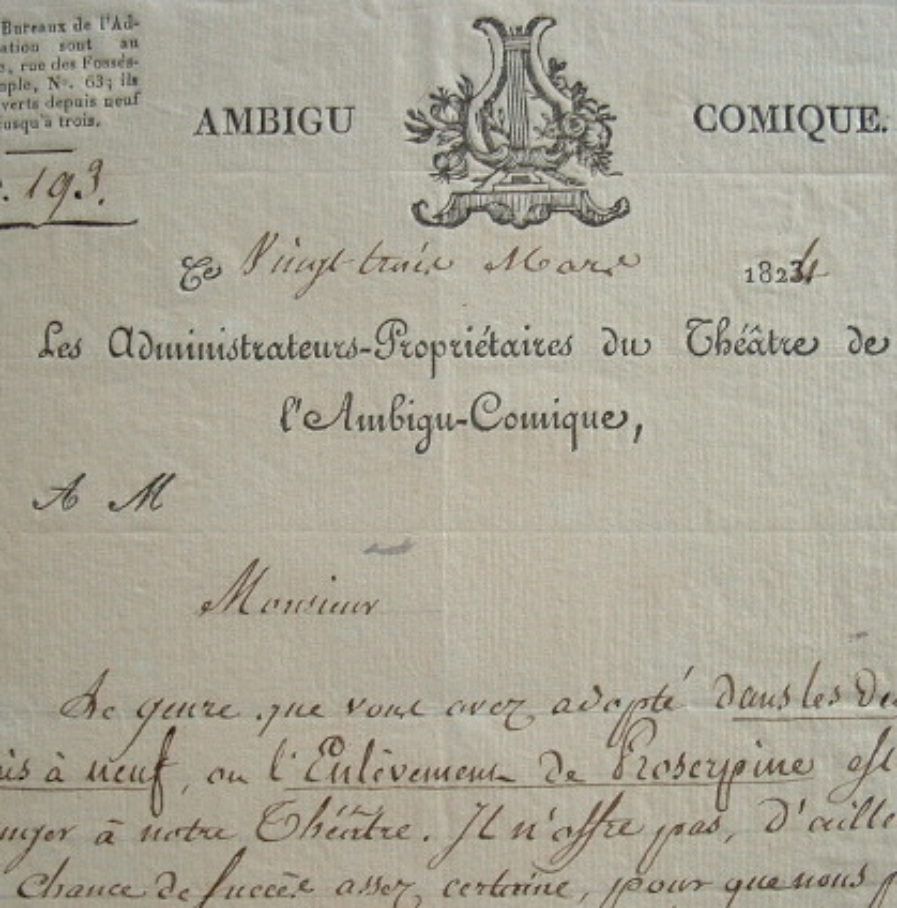 Bureaux de l'Ad-
ation sont au
s, rue des Fossés-
mple, N°. 63; ils
verts depuis neuf
jusqu'à trois.
AMBIGU COMIQUE.
°. 193.
Ce Vingt-trois Mars 1824
Les Administrateurs-Propriétaires du Théâtre de
l'Ambigu-Comique,
A M
Monsieur
Le genre que vous avez adopté dans les De
is à neuf, ou l'Enlèvement de Proserpine est
nger à notre Théâtre. Il n'offre pas, d'aille
chance de succès assez certaine, pour que nous p